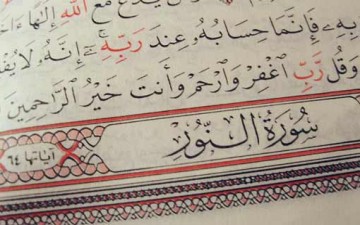 يدع مع الله إلهًا ءاخ
بِهِۦ فَإِنَّمَا حِسَابُهُۥ عِندَ رَبِّهِۦٓ ۚ إِنَّهُۥ لَا يُفْ
وَقُل رَّبِّ ٱغْفِرْ وَٱرْحَمْ وَأَنتَ خَيْرُ ٱلرَّٰحِمِينَ
سُورَةُ النُّورِ
آياتها ٦٤